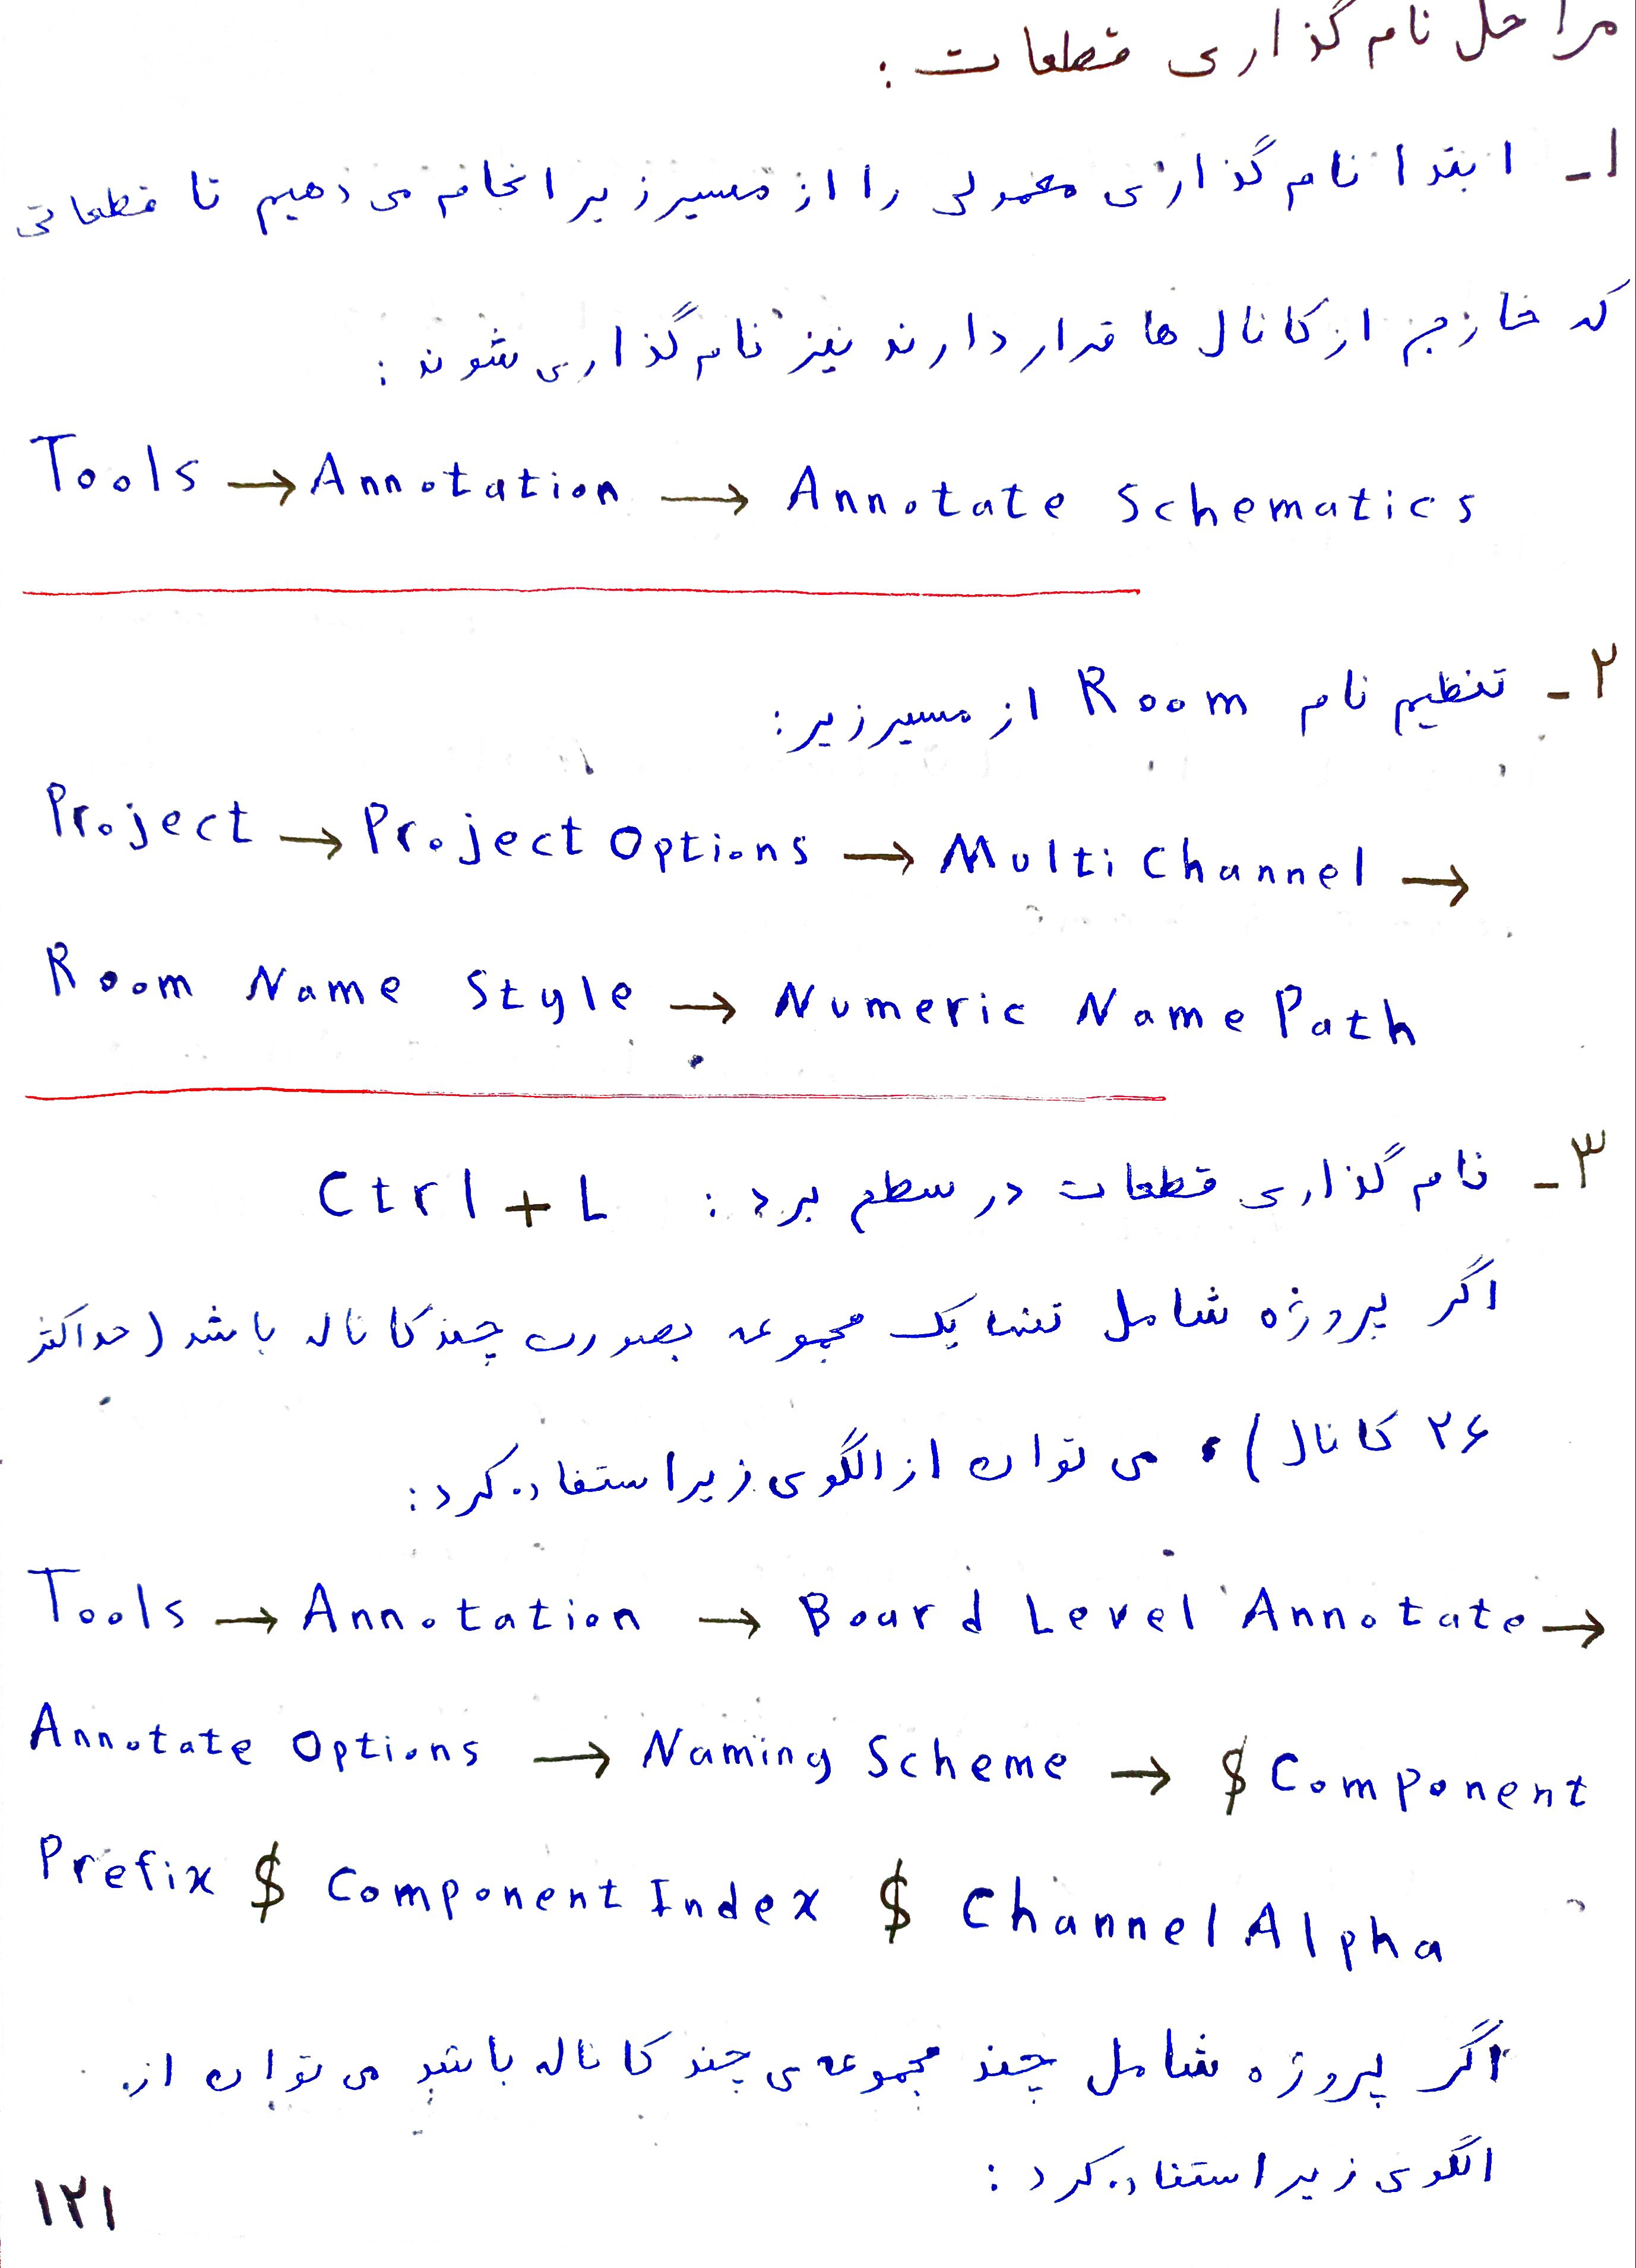 مراحل نام گذاری قطعات :
۱- ابتدا نام گذاری معمولی را از مسیر زیر انجام می دهیم تا قطعاتی
که خارج از کانال ها قرار دارند نیز نام گذاری شوند :
Tools → Annotation → Annotate Schematics
۲- تنظیم نام Room از مسیر زیر :
Project → Project Options → Multi Channel →
Room Name Style → Numeric Name Path
۳- نام گذاری قطعات در سطح برد : Ctrl + L
اگر پروژه شامل تنها یک مجموعه بصورت چند کاناله باشد (حداکثر
۲۶ کانال) ، می توان از الگوی زیر استفاده کرد :
Tools → Annotation → Board Level Annotate →
Annotate Options → Naming Scheme → $ Component
Prefix $ Component Index $ Channel Alpha
اگر پروژه شامل چند مجموعه ی چند کاناله باشد می توان از
الگوی زیر استفاده کرد :
۱۲۱